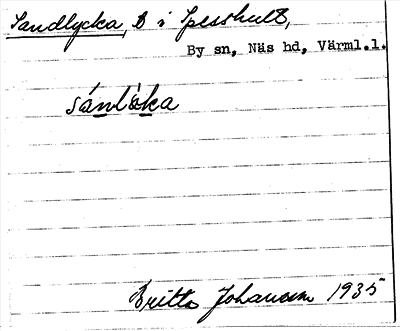 Sandlycka, B i Spesshult,
By sn, Näs hd, Värml.l.
sánlə̀ka
Britta Johansson 1935